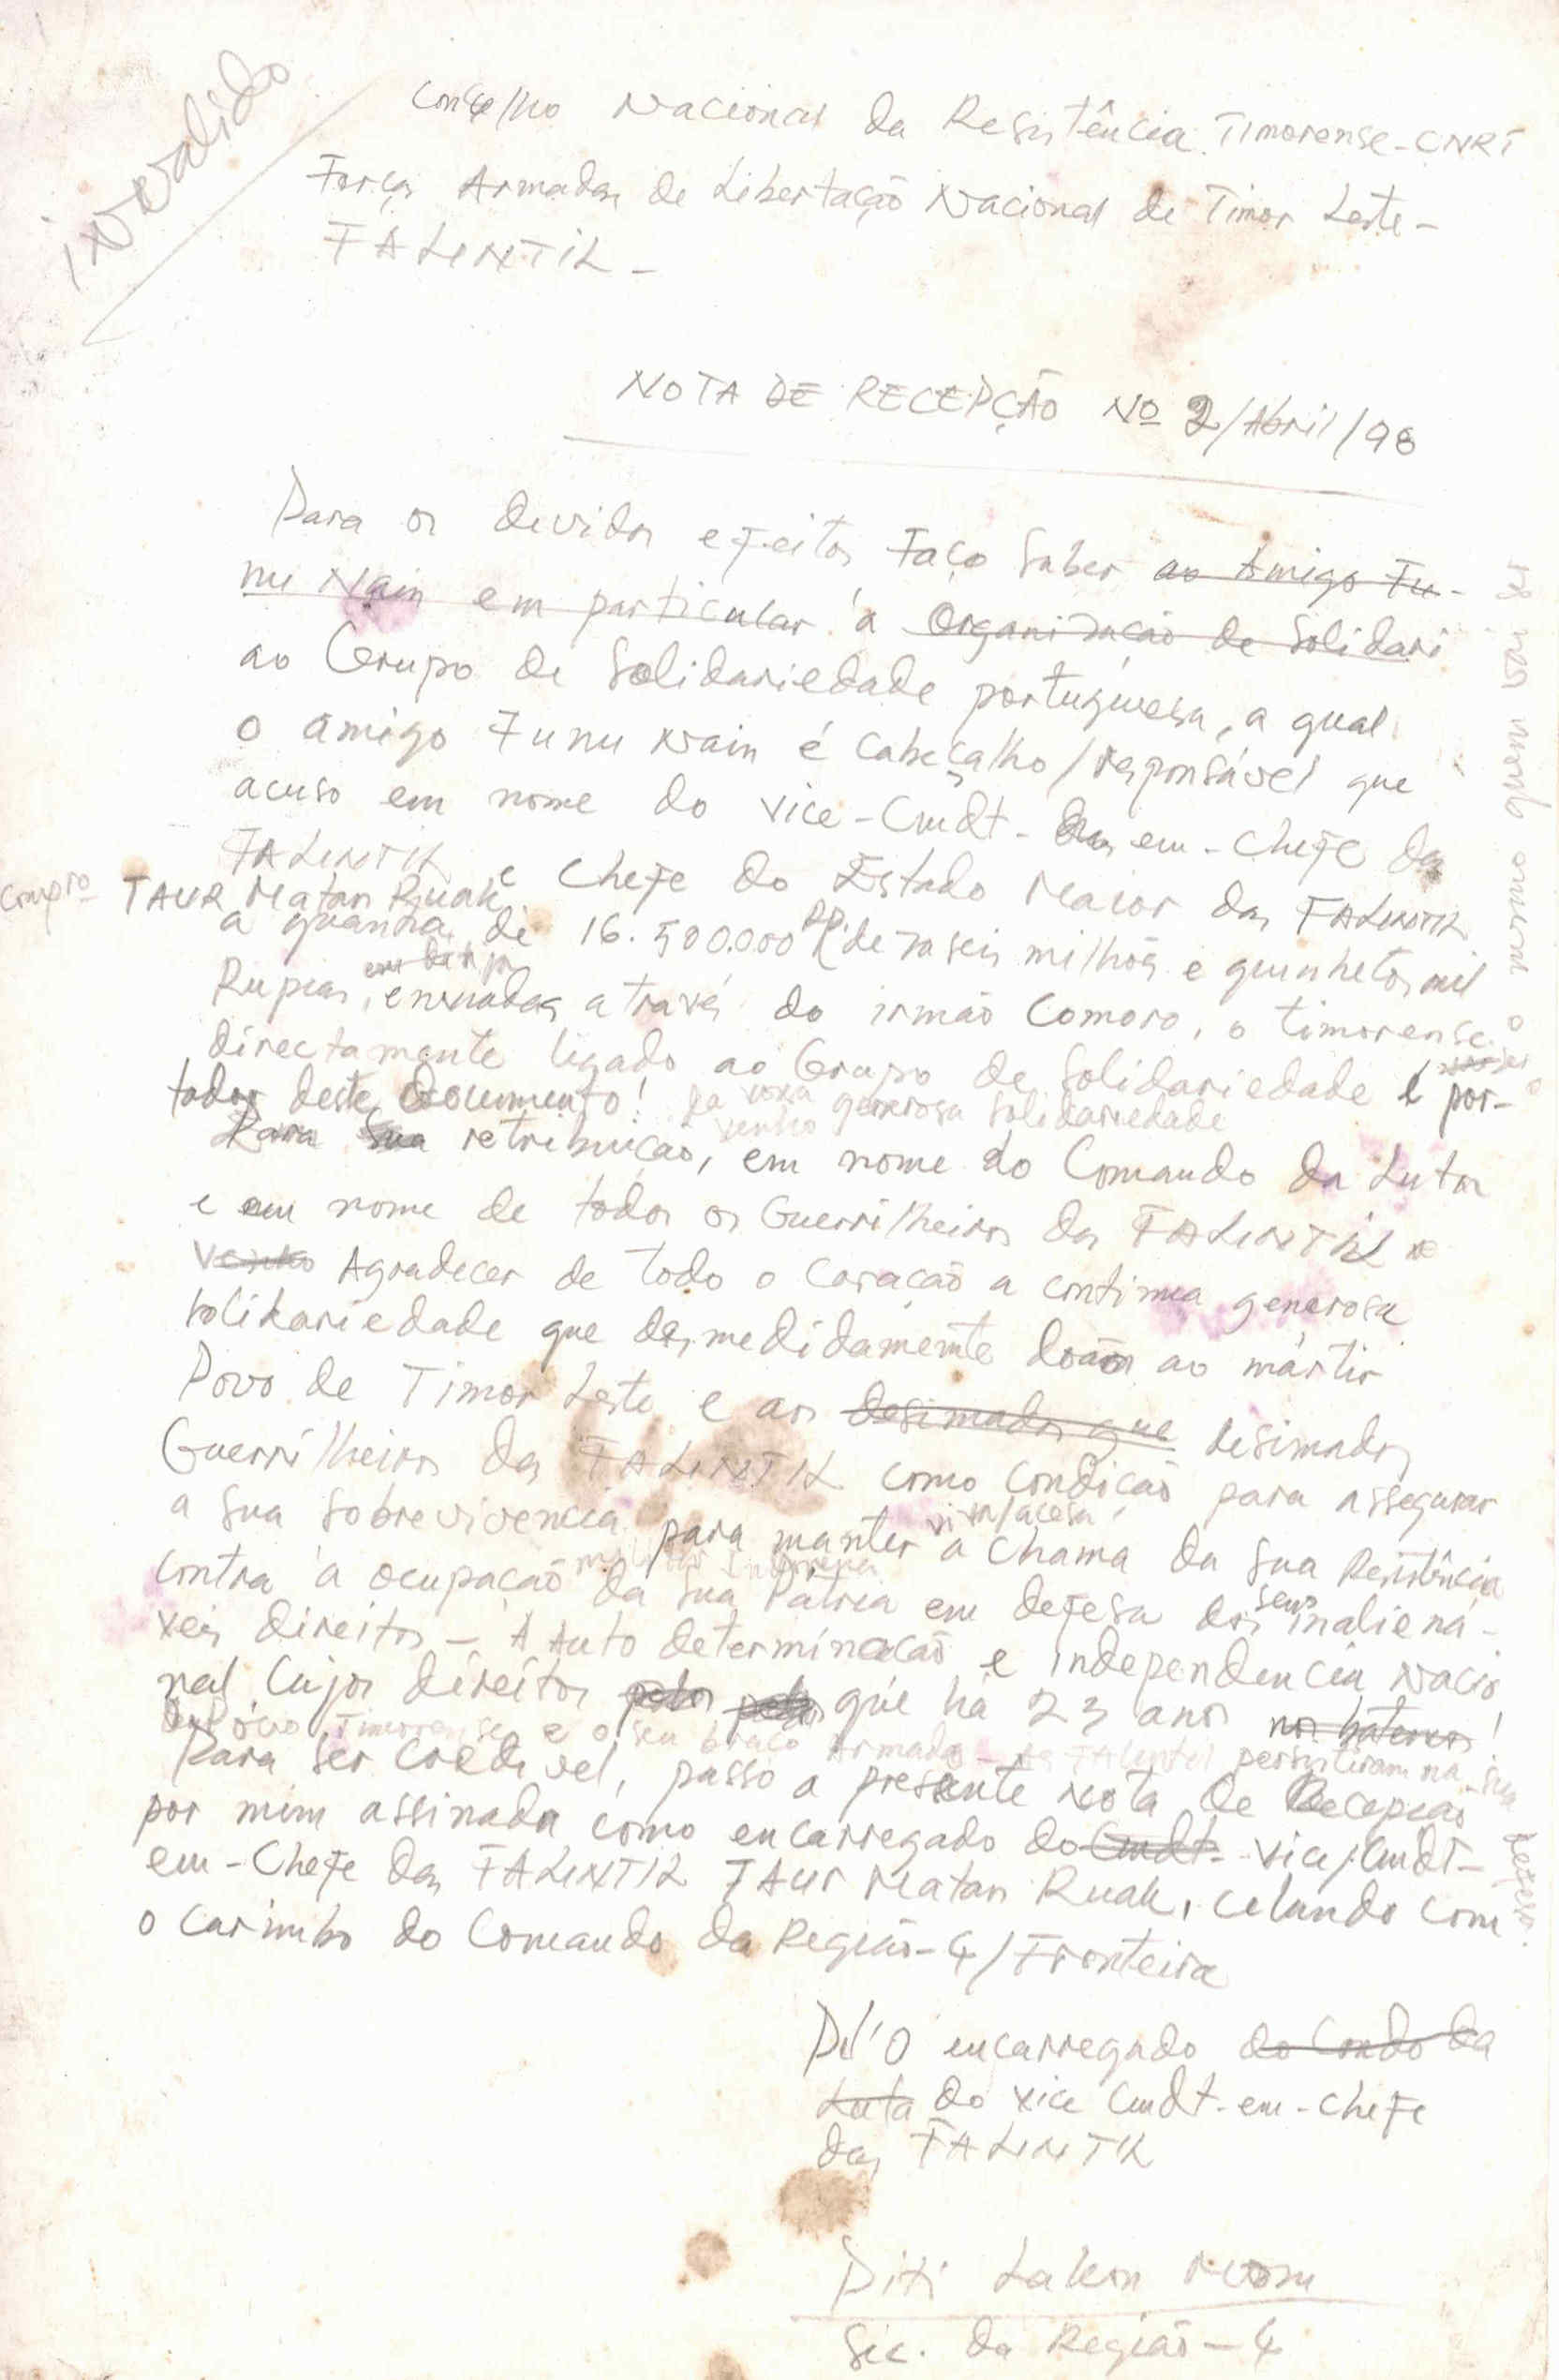 inválido
Conselho Nacional da Resistência Timorense-CNRT
Forças Armadas de Libertação Nacional de Timor Leste-
FALINTIL-
NOTA DE RECEPÇÃO Nº 2/Abril/98
Para os devidos efeitos Faço Saber ao Amigo Fu-
nu Nain em particular à Organização de Solidari
ao Grupo de Solidariedade portuguesa, a qual
o amigo Funu Nain é Cabeçalho/responsável que
acuso em nome do vice-Cmdt- em-Chefe das
FALINTIL e Chefe do Estado Maior das FALINTIL
TAUR Matan Ruak
a quantia de 16.500.000 Rp. (dezaseis milhões e quinhetos mil
Rupias, enviadas através do irmão Comoro, o timorense
directamente ligado ao Grupo de Solidariedade e por-
tador deste Documento!
da vossa generosa solidariedade
Para sua retribuição, venho em nome do Comando da Luta
e em nome de todos os Guerrilheiros das FALINTIL
Venho Agradecer de todo o Coração a continua generosa
solidariedade que desmedidamente doam ao mártir
Povo de Timor Leste e aos desimados que desimados
Guerrilheiros das FALINTIL como condição para assegurar
a sua sobrevivencia para manter viva/acesa a chama da sua Resistência
contra à ocupação militar Indonésia da sua Pátria em defesa dos seus inaliená-
veis direitos - A Auto determinação e independencia Nacio
nal Cujos direitos pelos que há 23 anos nos batemos!
do Povo Timorense e o seu braço Armado - As FALINTIL persistiram na sua defesa.
Para ser credivel, passo a presente Nota de Recepção
por mim assinada como encarregado do Cmdt- vice/Cmdt-
em-Chefe das FALINTIL TAUR Matan Ruak, celando com
o Carimbo do Comando da Região-4/Fronteira
Pel'O encarregado do Comdo da
Luta do vice Cmdt-em-Chefe
das FALINTIL
Diti Lakon
Sec. da Região-4
o mesmo quem vai ser